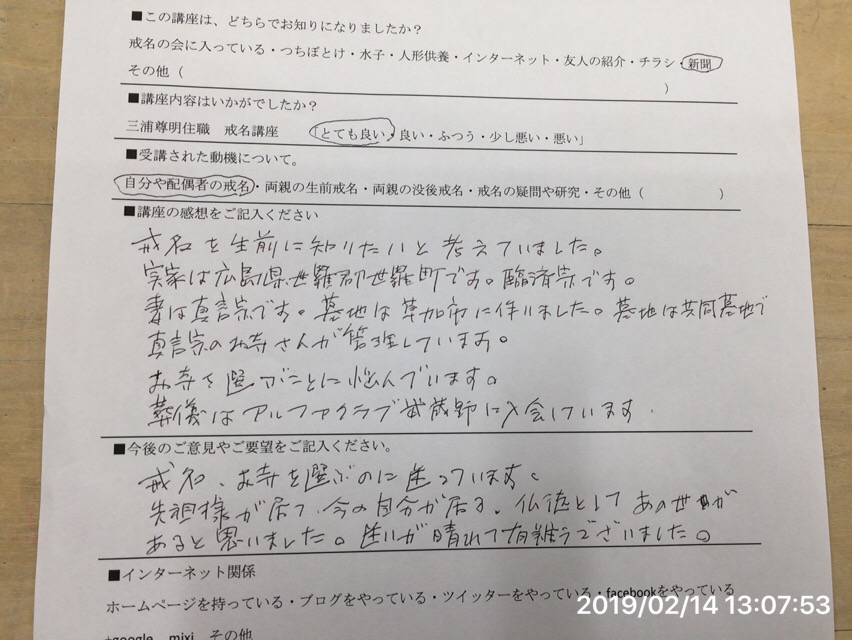 ■この講座は、どちらでお知りになりましたか？
戒名の会に入っている・つちぼとけ・水子・人形供養・インターネット・友人の紹介・チラシ・新聞
その他（ ）
■講座内容はいかがでしたか？
三浦尊明住職 戒名講座 「とても良い・良い・ふつう・少し悪い・悪い」
■受講された動機について。
自分や配偶者の戒名・両親の生前戒名・両親の没後戒名・戒名の疑問や研究・その他（ ）
■講座の感想をご記入ください
戒名を生前に知りたいと考えていました。
実家は広島県世羅郡世羅町です。臨済宗です。
妻は真言宗です。墓地は草加市に作りました。墓地は共同墓地で
真言宗のお寺さんが管理しています。
お寺を選ぶことに悩んでいます。
葬儀はアルファクラブ武蔵野に入会しています.
■今後のご意見やご要望をご記入ください。
戒名、お寺を選ぶのに迷っています。
先祖様が居て、今の自分が居る、仏徒としてあの世が
あると思いました。迷いが晴れて有難うございました。
■インターネット関係
ホームページを持っている・ブログをやっている・ツイッターをやっている・facebookをやっている
+google mixi その他
2019/02/14 13:07:53